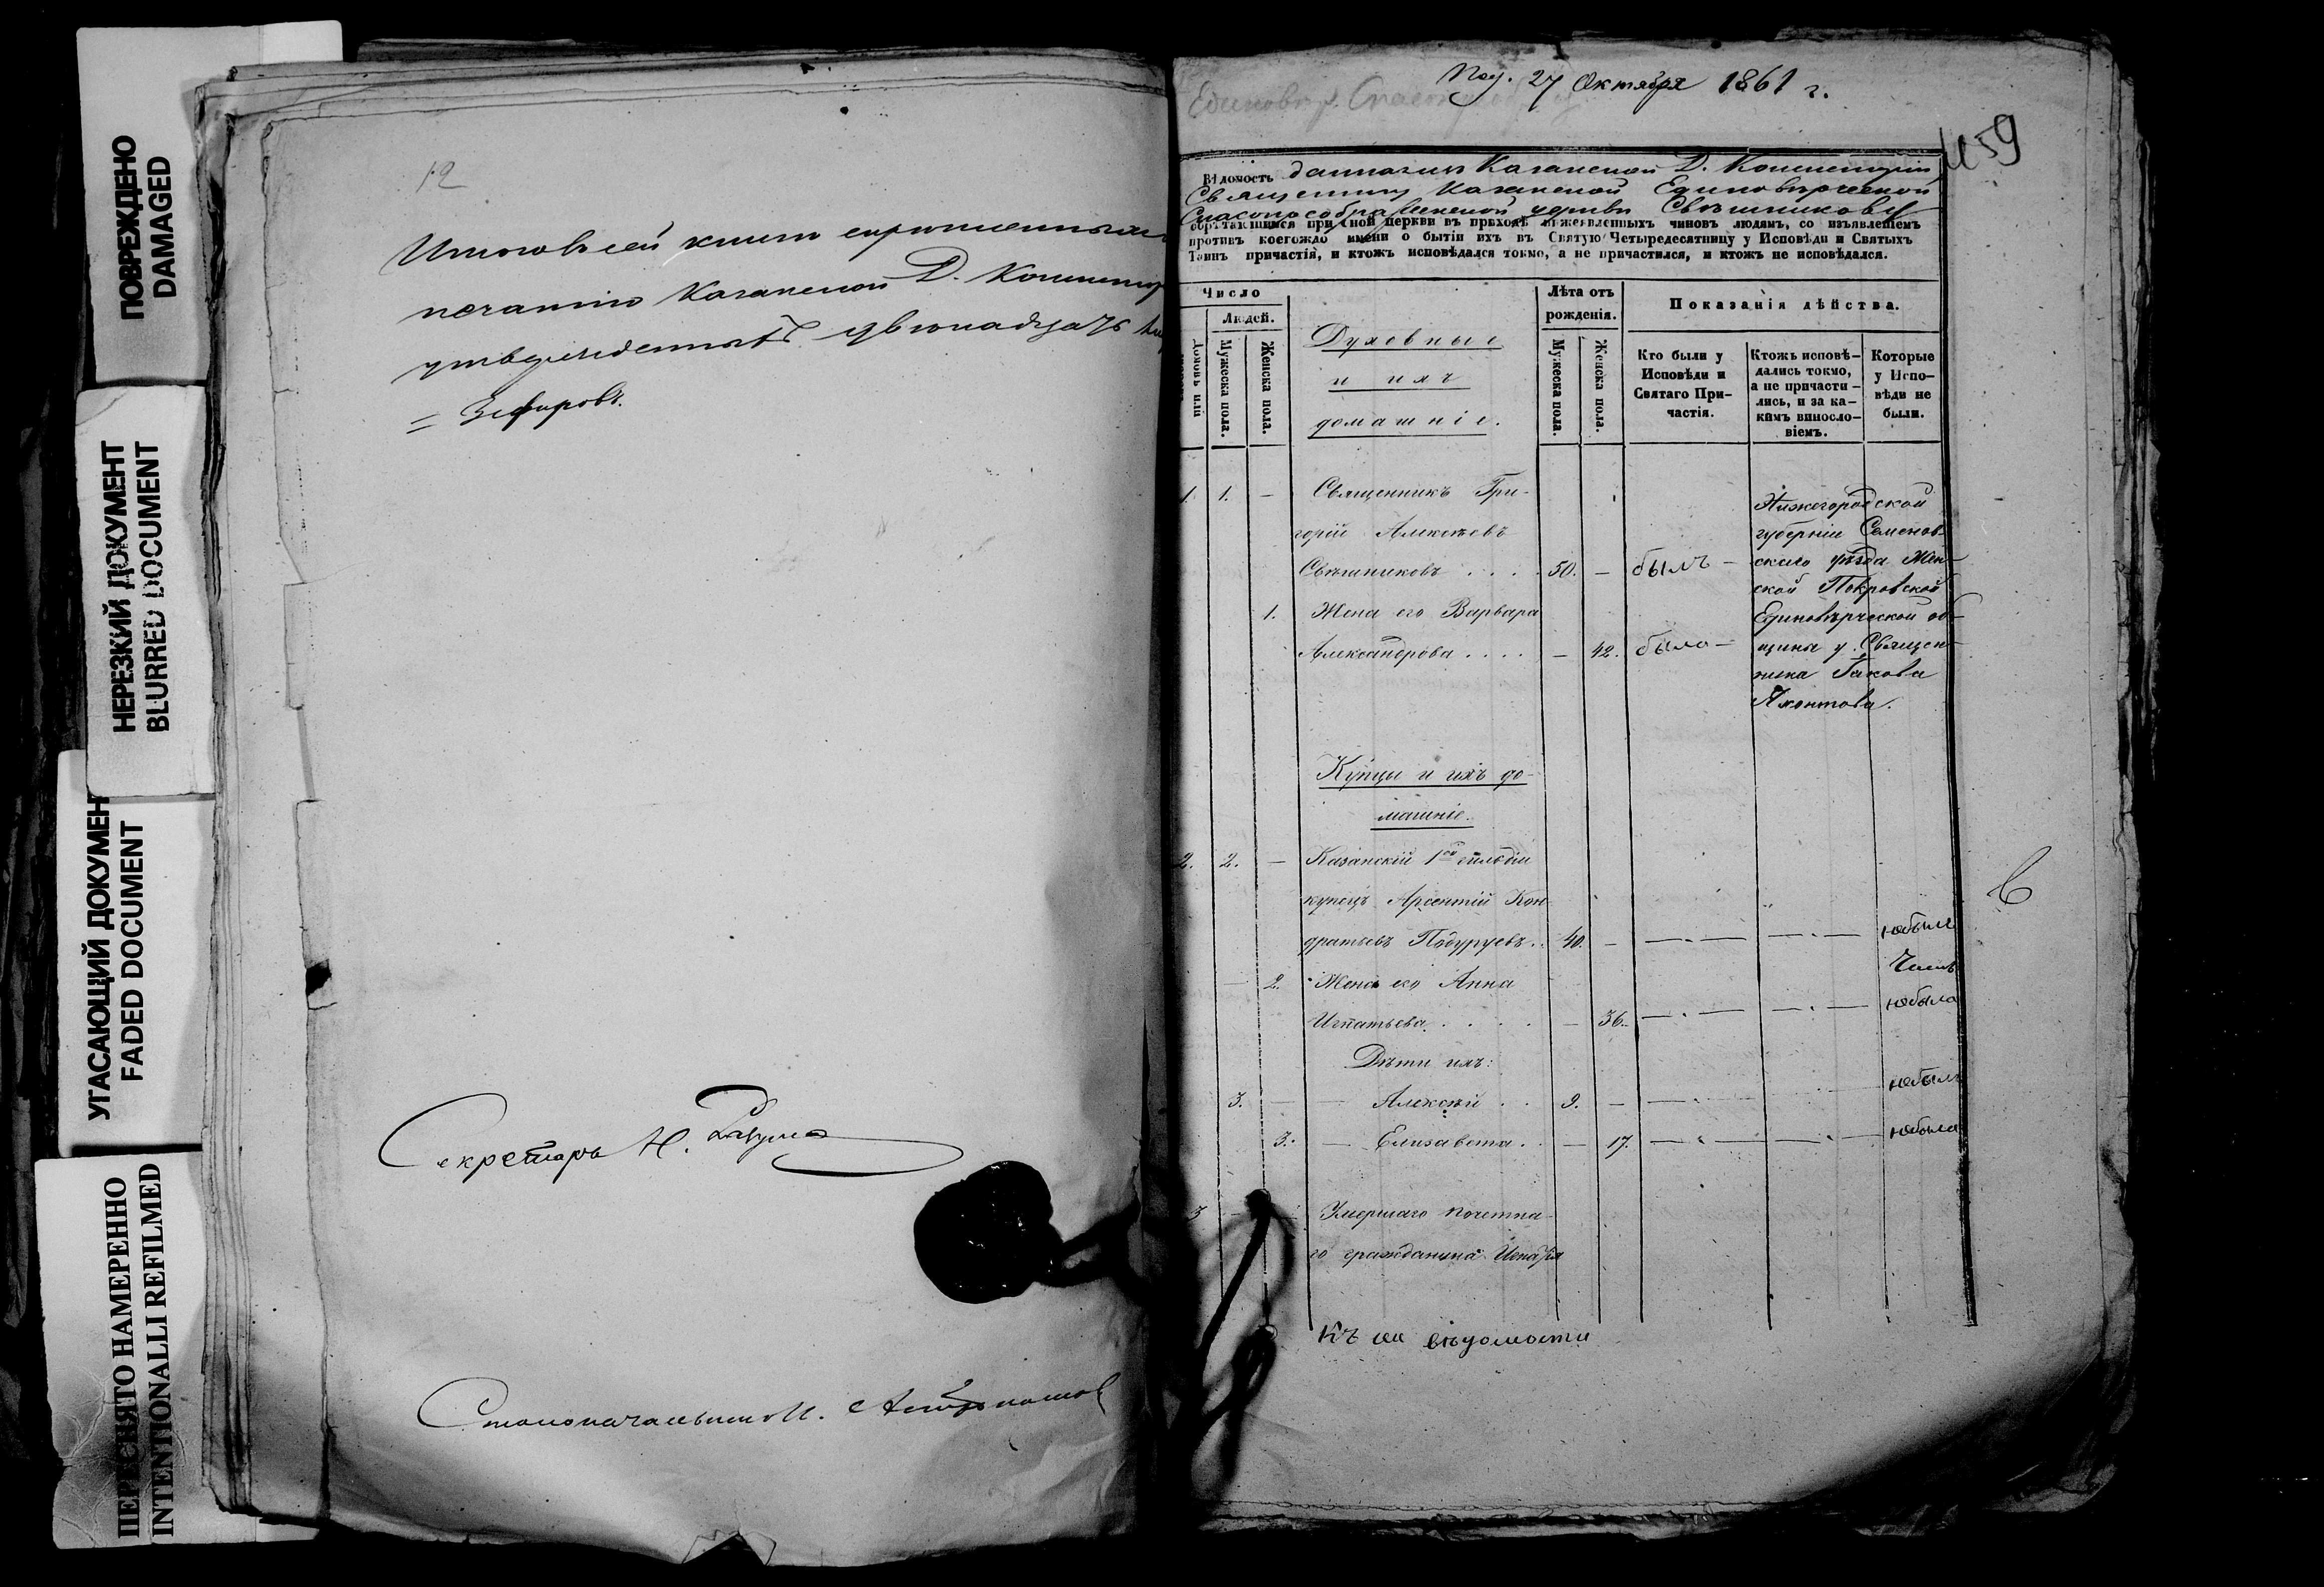 ПОВРЕЖДЕНО
DAMAGED
НЕРЕЗКИЙ ДОКУМЕНТ
BLURRED DOCUMENT
УГАСАЮЩИЙ ДОКУМЕН
FADED DOCUMENT
ПЕРЕСНЯТО НАМЕРЕННО
INTENTIONALLI REFILMED
12
Итого въ сей книге скрепленныхъ
печатию Казанской Д. Консистор
утвержденныхъ двенадцать
Зефировъ.
Секретарь Н.
Столоначальник
Под. 27 Октября 1861 г.
Единовѣр. Спас
59
Вѣдомость данная изъ Казанской Д. Консисторіи
Священнику Казанской Единовѣрческой
Спасопреображенской церкви Свѣшникову
обрѣтающимся при оной церкви въ приходѣ нижеявленныхъ чиновъ людямъ, со изъявленіемъ
противъ коегождо имени о бытіи ихъ въ Святую Четыредесятницу у Исповѣди и Святыхъ
Таинъ причастія, и ктожъ исповѣдался токмо, а не причастился, и ктожъ не исповѣдался.
Число
Людей.
Домовъ или
Мужеска пола.
Женска пола.
Духовные
и ихъ
домашніе.
Лѣта отъ
рожденія.
Мужеска пола.
Женска пола.
Показанія дѣйства.
Кто были у
Исповѣди и
Святаго При-
частія.
Ктожъ исповѣ-
дались токмо,
а не причасти-
лись, и за ка-
кимъ винословіемъ.
Которые
у Испо-
вѣди не
были.
1. 1. — Священникъ Гри-
горій Алексѣевъ
Свѣшниковъ . . . . 50. — былъ —
1. Жена его Варвара
Александрова . . . . — 42. была —
Нижегородской
губерніи Семенов-
скаго уѣзда Жен-
ской Покровской
Единовѣрческой об-
щины у Священ-
ника Іакова
Купцы и ихъ до-
машніе.
2. 2. — Казанскій 1ой гильдіи
купецъ Арсентій Кон
дратьевъ Подуруевъ . . 40. — — . — — . — небылъ
2. Жена его Анна
Игнатьева . . . . — 36. — . — — . — небыла
Дѣти ихъ:
3. — — Алексѣй . . 9. — — . — небылъ
3. — Елизавета . . — 17. — . — — . — небыла
3 Умершаго почетна-
го гражданина
Къ сей вѣдомости